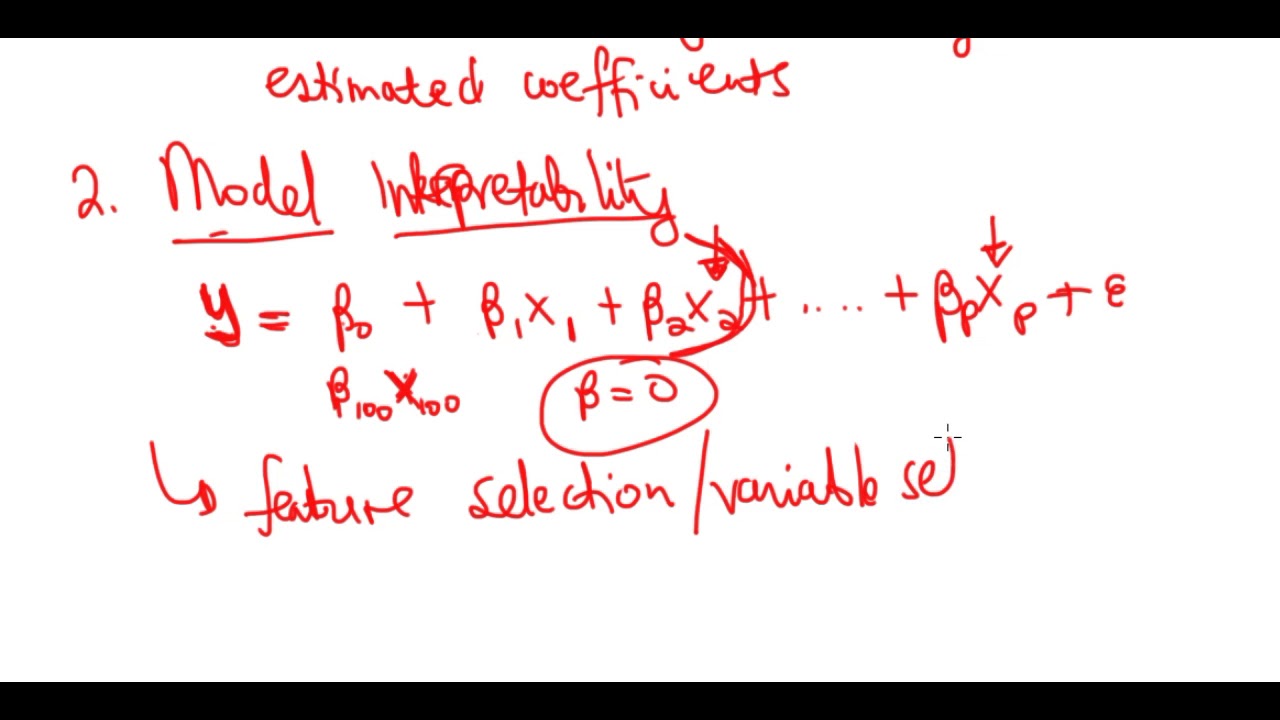 estimated coefficients
2. Model Interpretability
y = β₀ + β₁x₁ + β₂x₂ + ..... + βₚxₚ + ε
β₁₀₀x₁₀₀ β = 0
↳ feature selection/variable sel